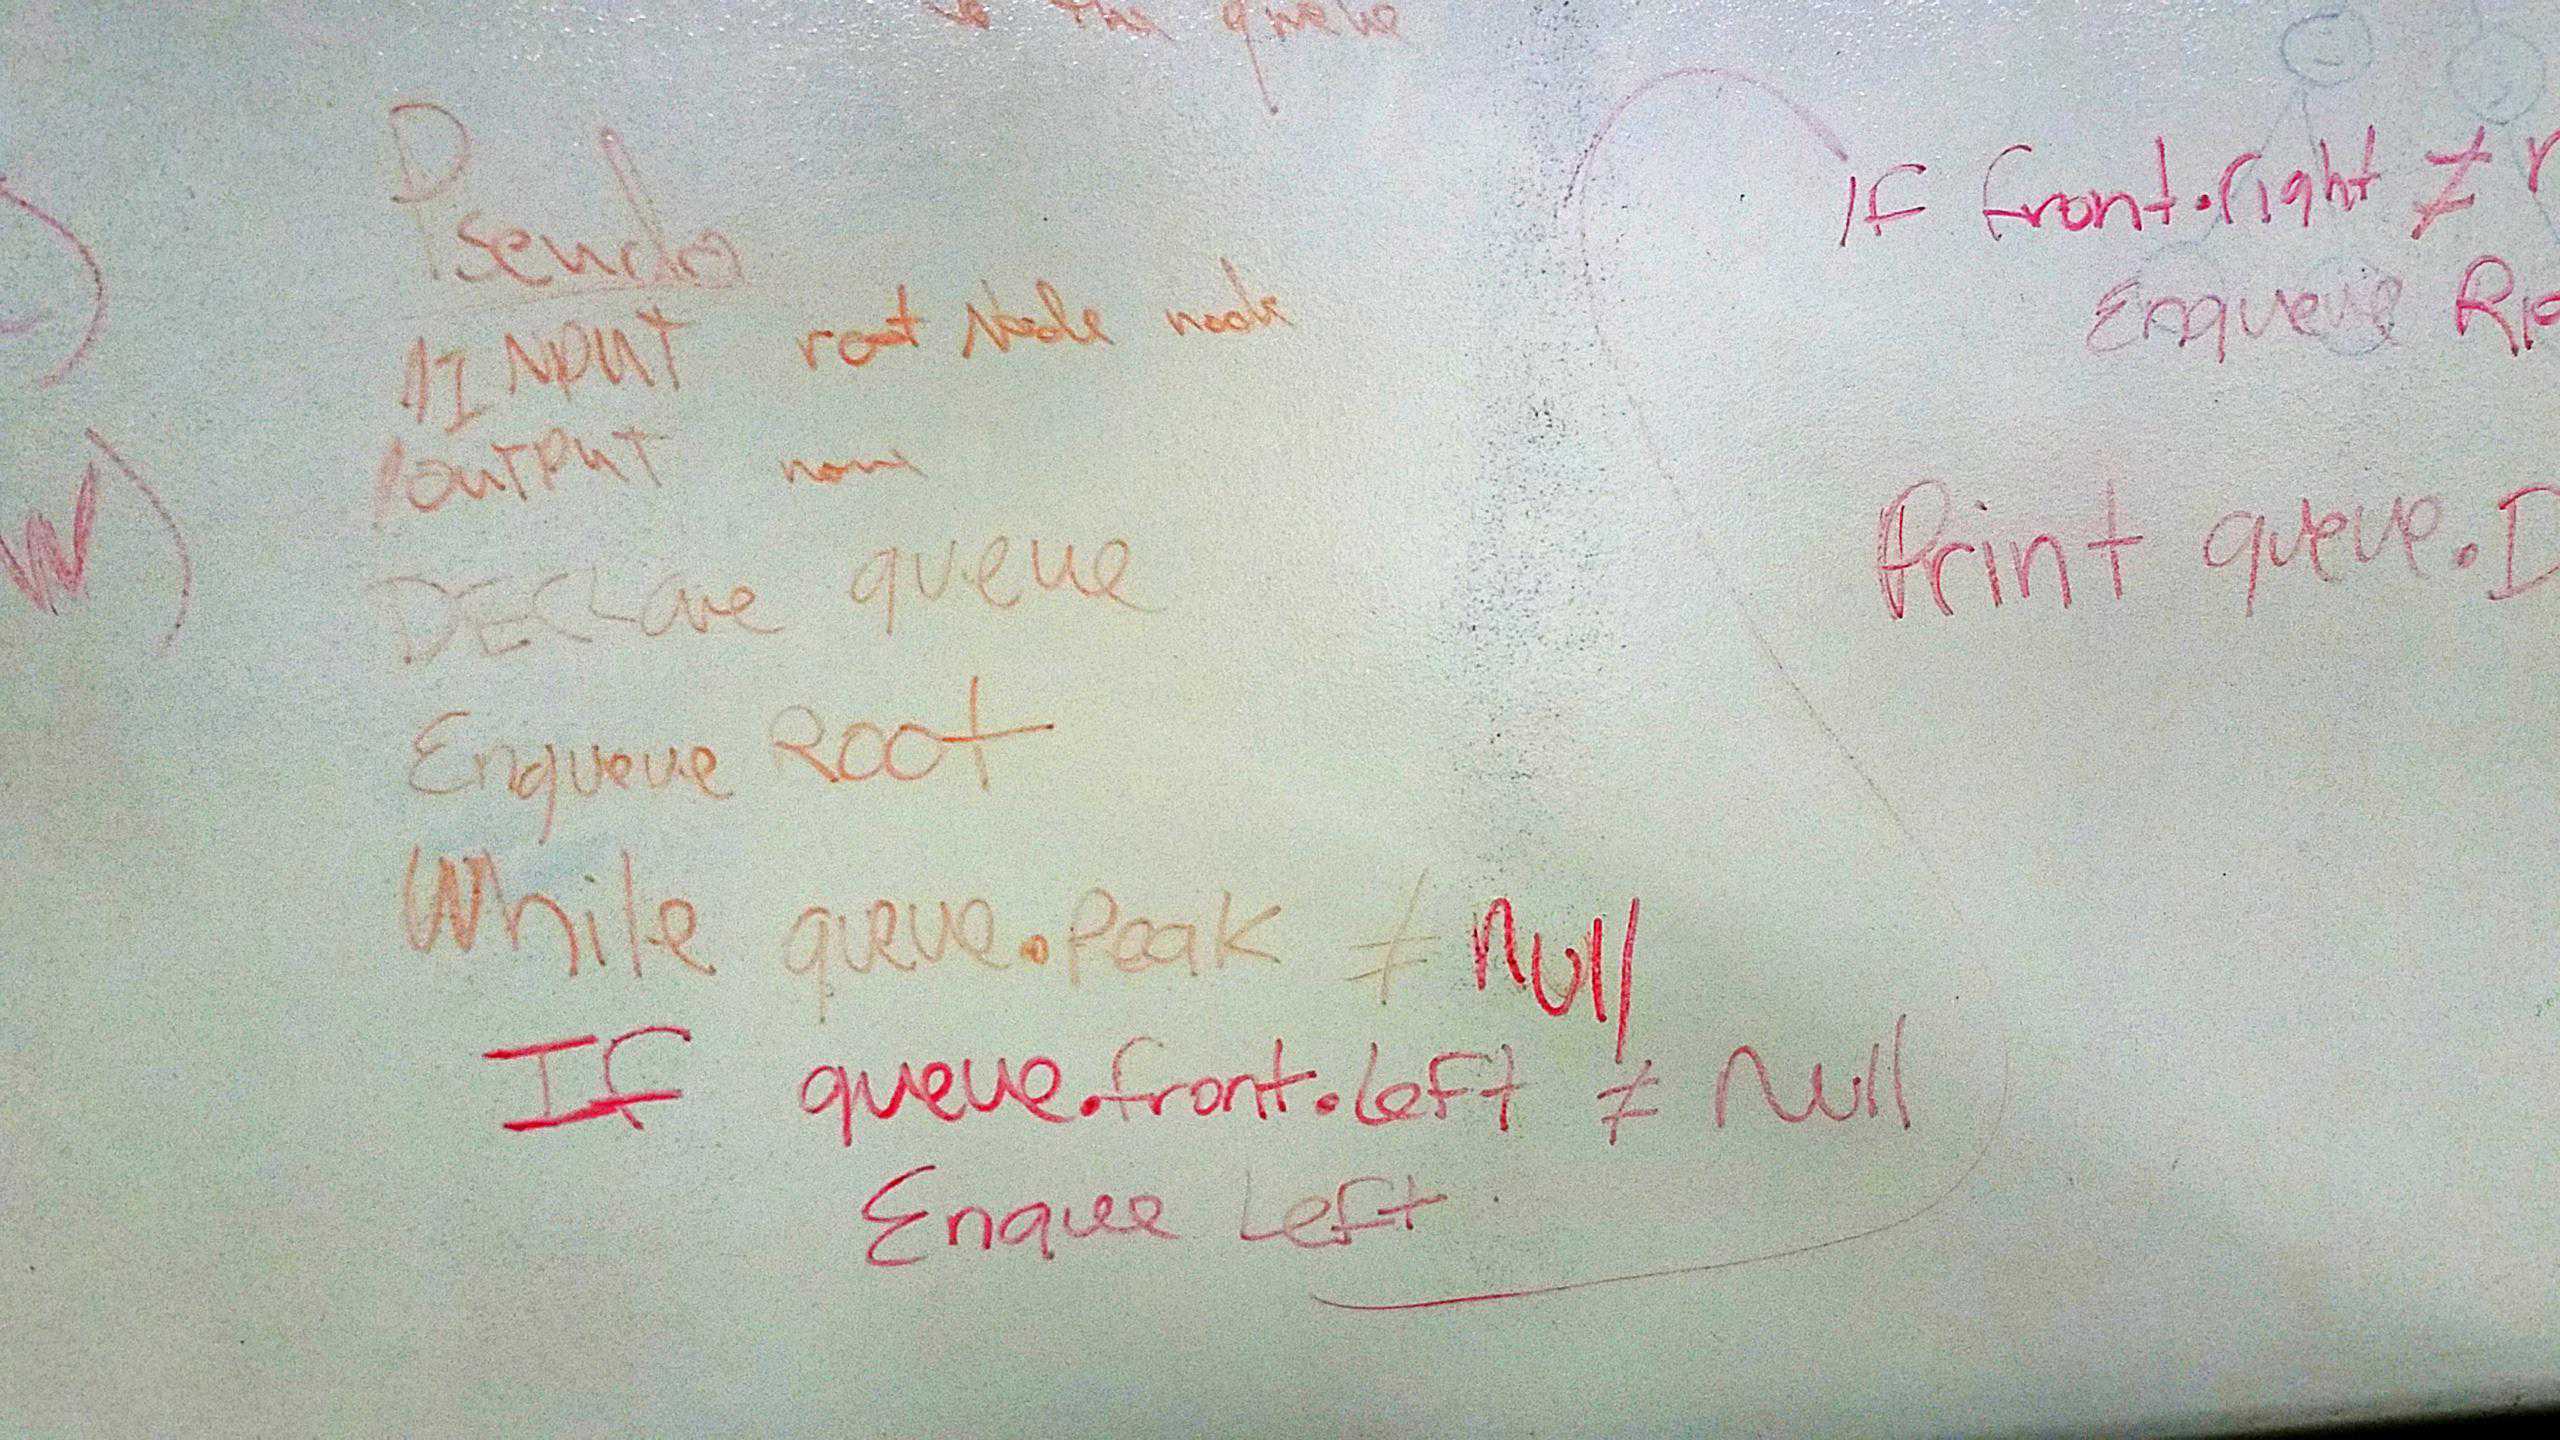 the queue
Pseudo
//INPUT root Node node
//OUTPUT none
DECLare queue
Enqueue Root
While queue.Peak ≠ null
IF queue.front.left ≠ Null
Enquee Left
IF front.right ≠
Enqueue
Print queue.D
W)